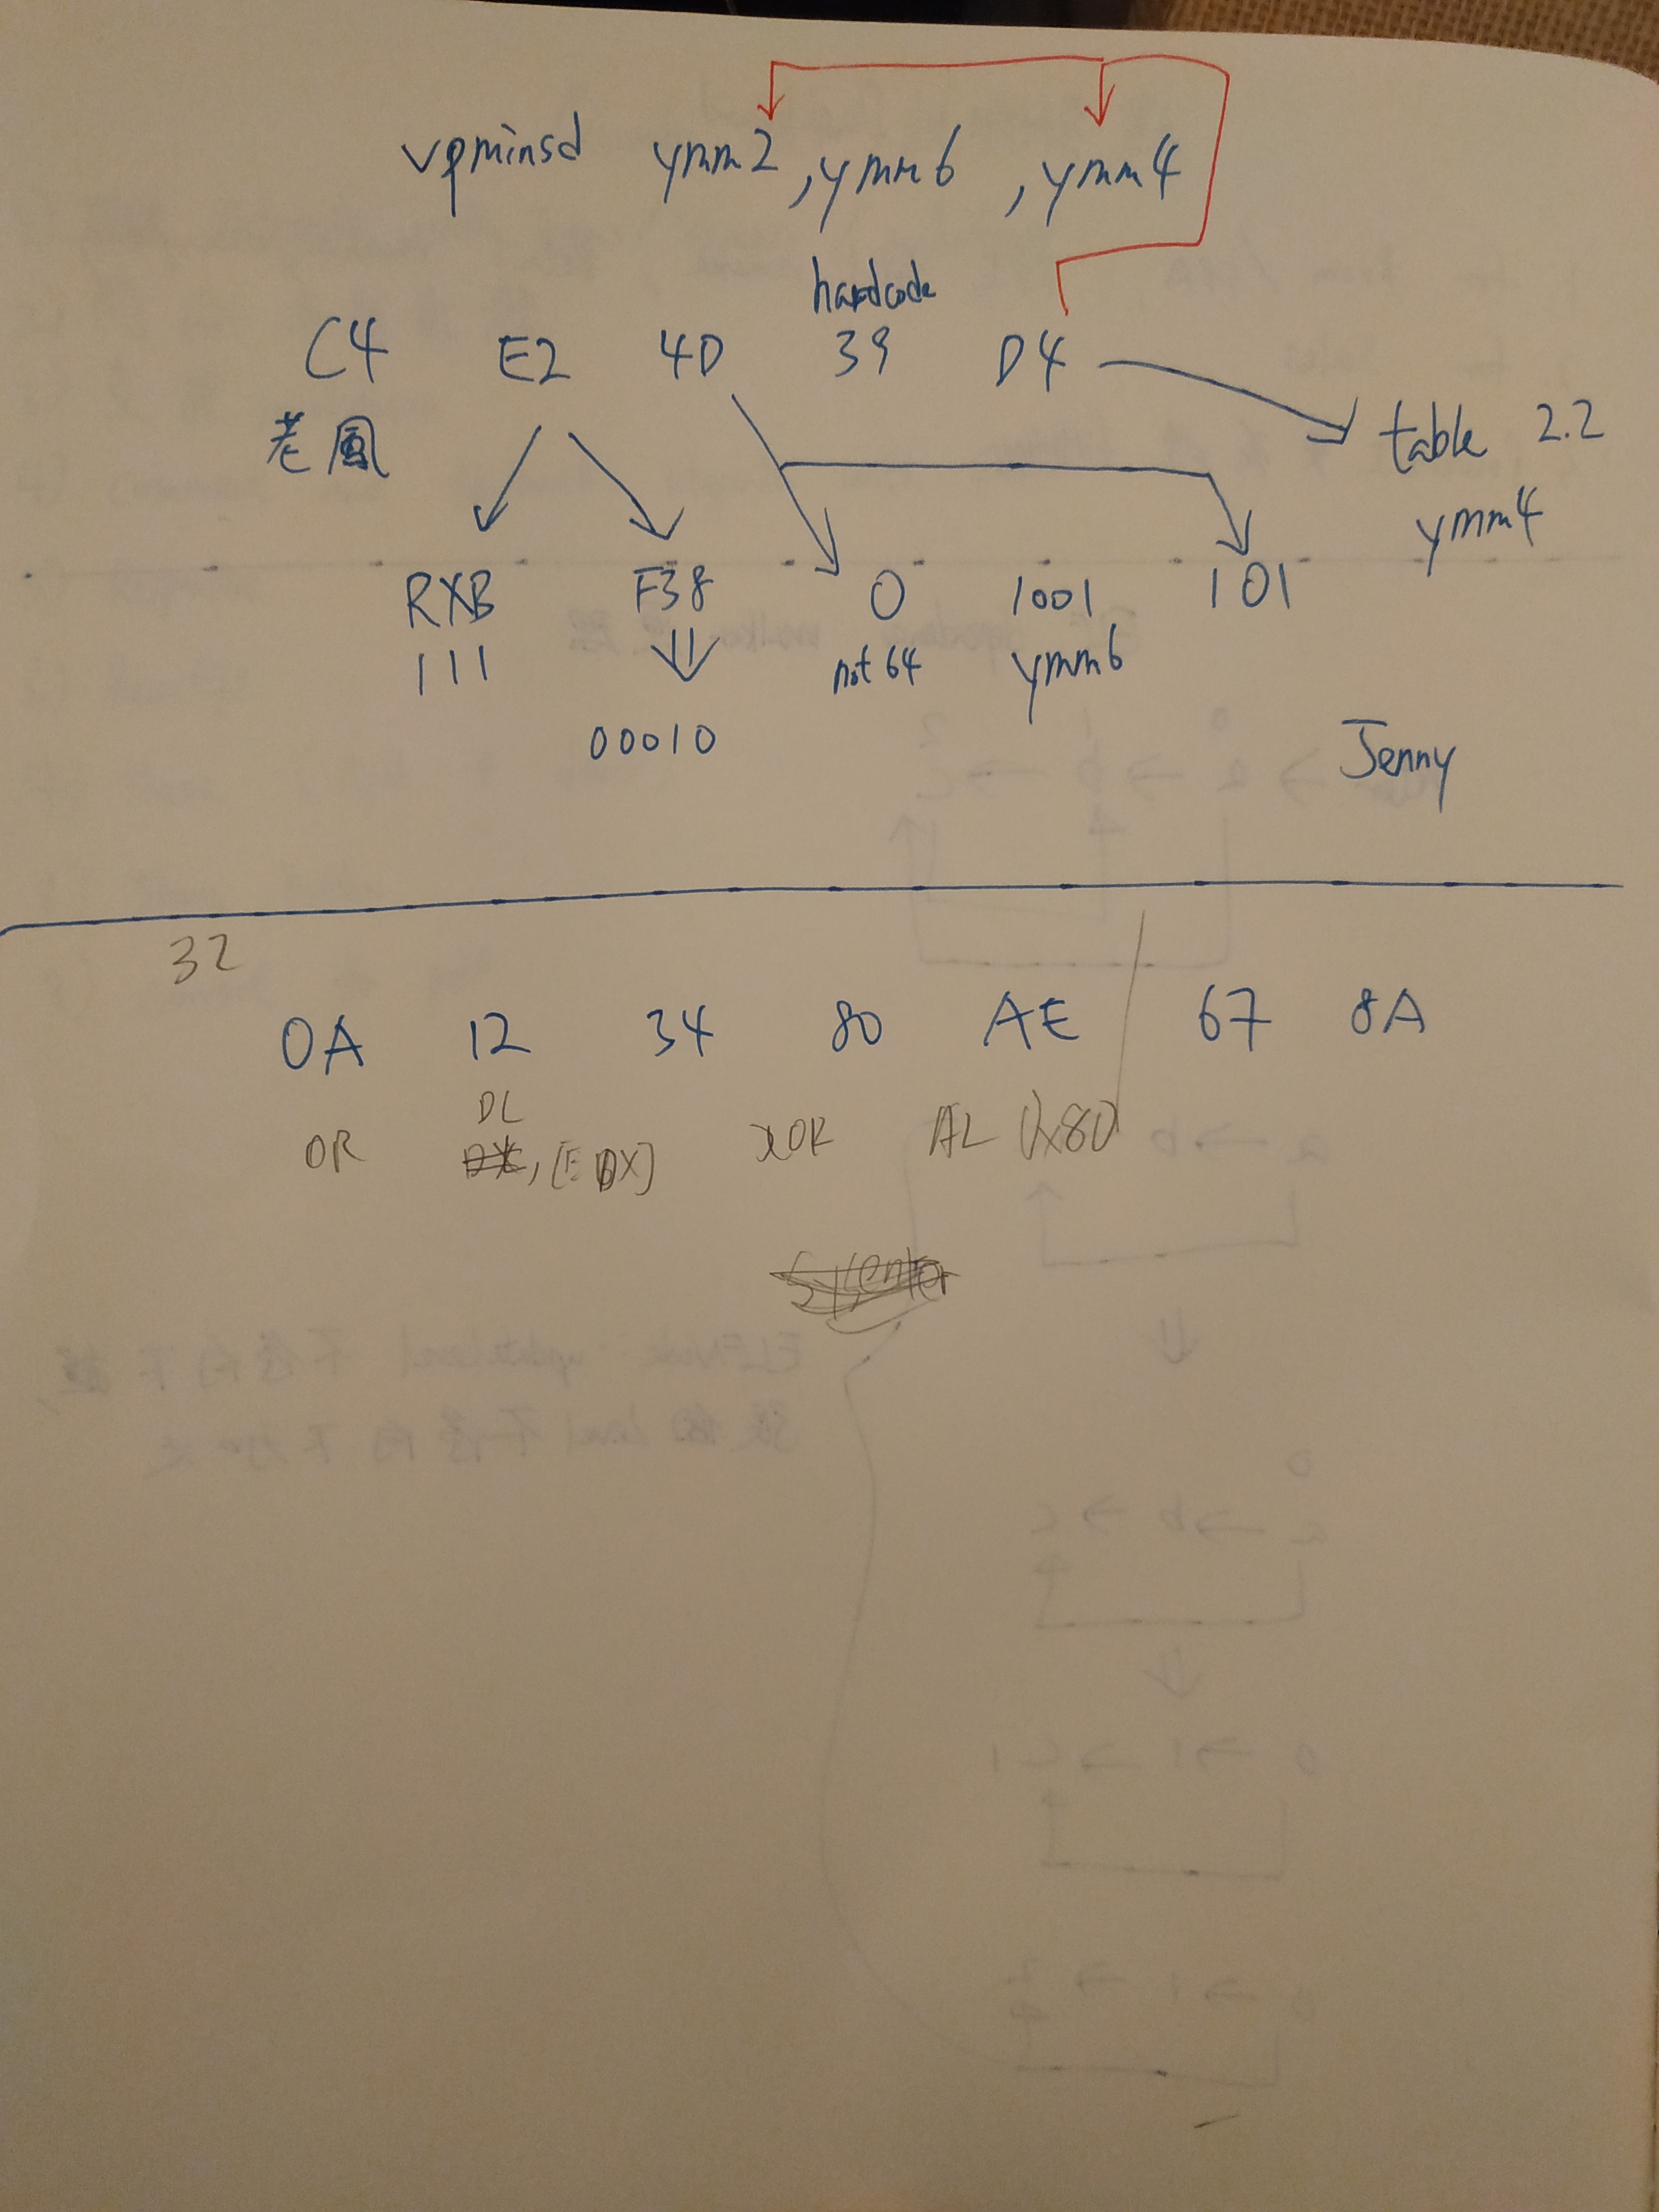 vpminsd ymm2, ymm6, ymm4
hardcode
C4 E2 4D 39 D4
老鳳
table 2.2
ymm4
RXB F38 0 1001 101
111 not 64 ymm6
00010
Jenny
32
0A 12 34 80 AE 67 8A
DL
OR , [EDX] XOR AL 0x80